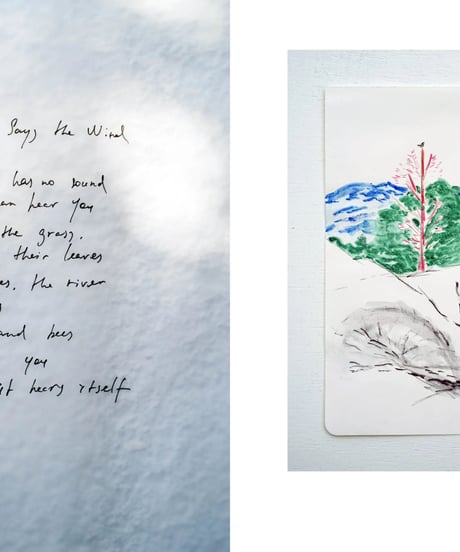 Says the Wind
has no sound
hear you
the grass,
their leaves
the river
and bees
you
hears itself